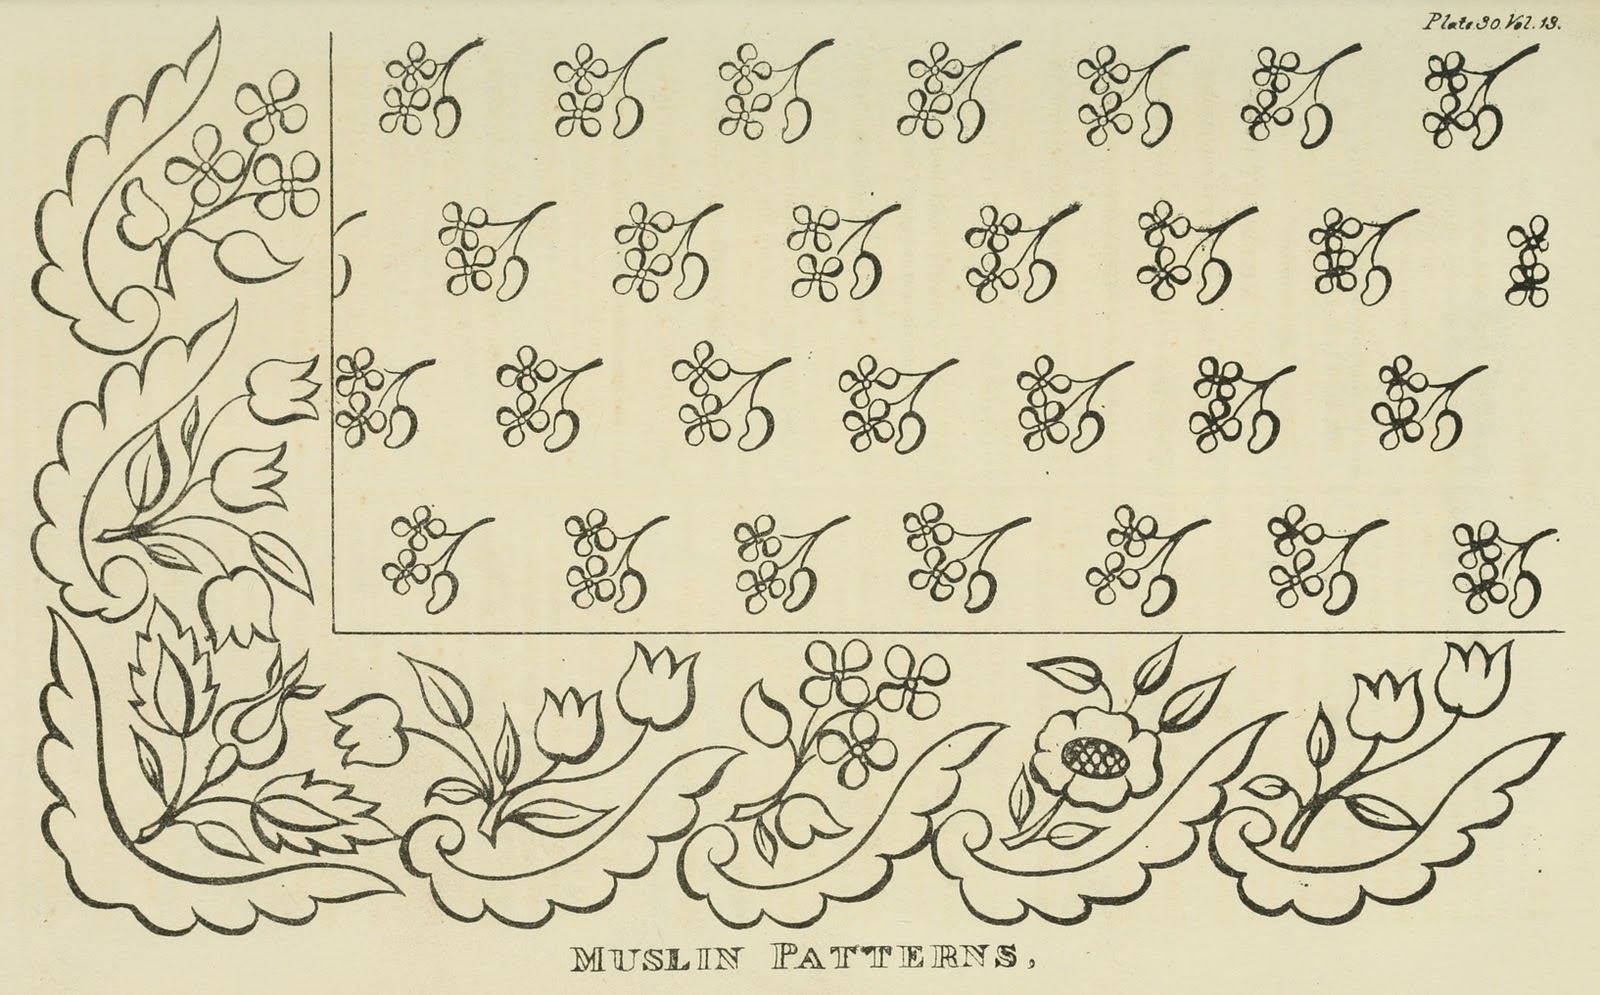 Plate 30. Vol. 13.
MUSLIN PATTERNS,